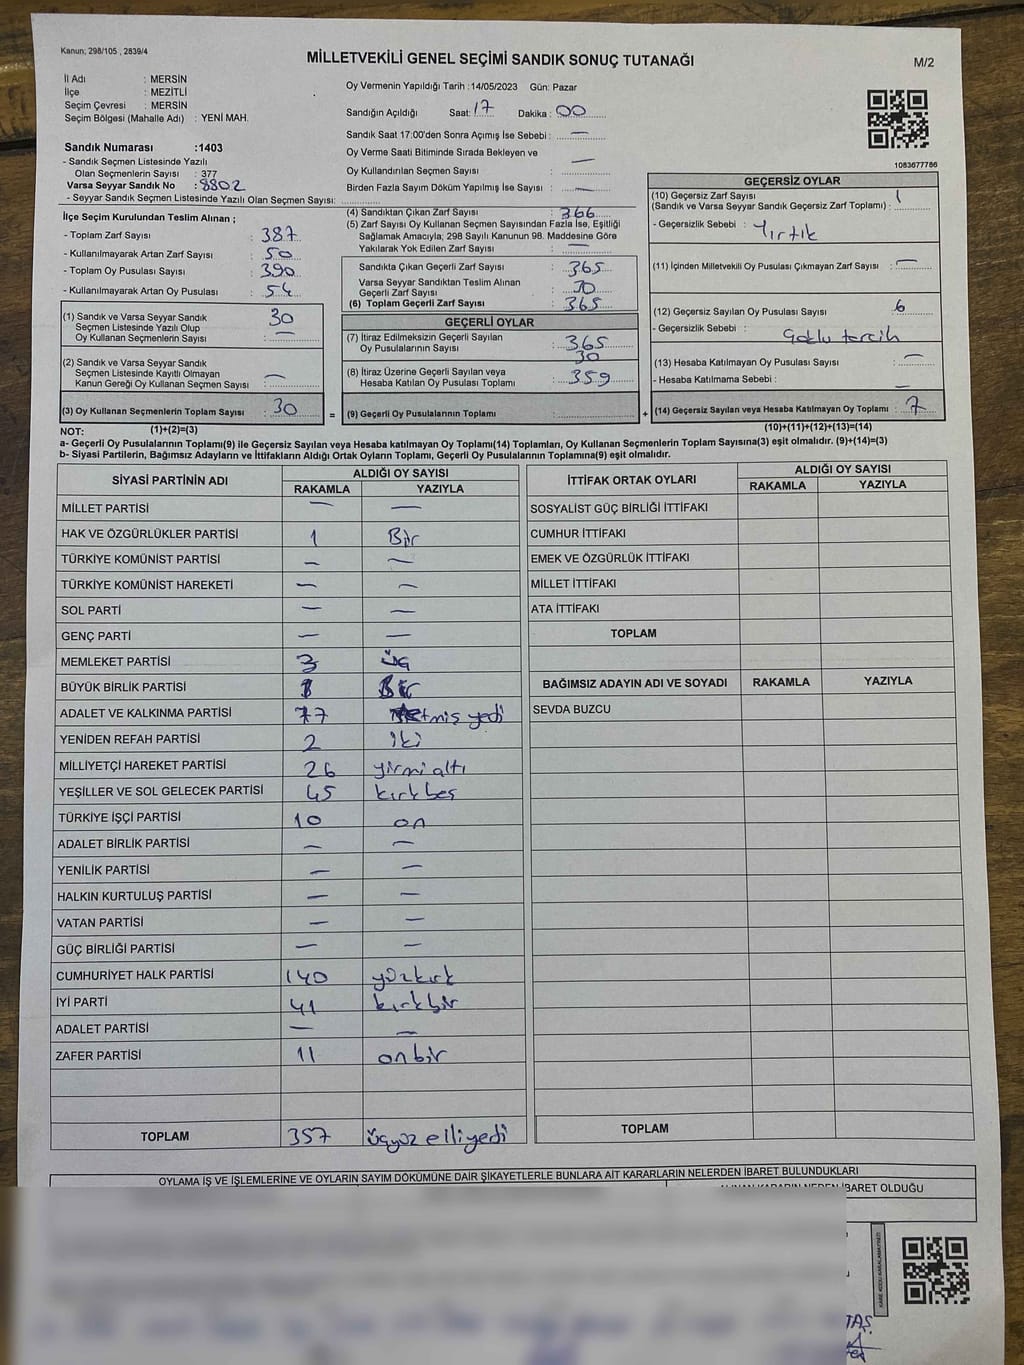 Kanun; 298/105 , 2839/4
MİLLETVEKİLİ GENEL SEÇİMİ SANDIK SONUÇ TUTANAĞI
M/2
İl Adı : MERSİN
İlçe : MEZİTLİ
Seçim Çevresi : MERSİN
Seçim Bölgesi (Mahalle Adı) : YENİ MAH.
Sandık Numarası :1403
- Sandık Seçmen Listesinde Yazılı
Olan Seçmenlerin Sayısı : 377
Varsa Seyyar Sandık No : 8802
- Seyyar Sandık Seçmen Listesinde Yazılı Olan Seçmen Sayısı:
İlçe Seçim Kurulundan Teslim Alınan ;
- Toplam Zarf Sayısı : 387
- Kullanılmayarak Artan Zarf Sayısı : 50
- Toplam Oy Pusulası Sayısı : 390
- Kullanılmayarak Artan Oy Pusulası : 54
(1) Sandık ve Varsa Seyyar Sandık 30
Seçmen Listesinde Yazılı Olup
Oy Kullanan Seçmenlerin Sayısı : —
(2) Sandık ve Varsa Seyyar Sandık
Seçmen Listesinde Kayıtlı Olmayan —
Kanun Gereği Oy Kullanan Seçmen Sayısı :
(3) Oy Kullanan Seçmenlerin Toplam Sayısı : 30 =
Oy Vermenin Yapıldığı Tarih :14/05/2023 Gün: Pazar
Sandığın Açıldığı Saat: 17 Dakika : 00
Sandık Saat 17:00'den Sonra Açımış İse Sebebi : —
Oy Verme Saati Bitiminde Sırada Bekleyen ve
Oy Kullandırılan Seçmen Sayısı : —
Birden Fazla Sayım Döküm Yapılmış İse Sayısı : —
(4) Sandıktan Çıkan Zarf Sayısı : 366
(5) Zarf Sayısı Oy Kullanan Seçmen Sayısından Fazla İse, Eşitliği
Sağlamak Amacıyla; 298 Sayılı Kanunun 98. Maddesine Göre
Yakılarak Yok Edilen Zarf Sayısı : —
Sandıkta Çıkan Geçerli Zarf Sayısı : 365
Varsa Seyyar Sandıktan Teslim Alınan
Geçerli Zarf Sayısı : 30
(6) Toplam Geçerli Zarf Sayısı : 365
GEÇERLİ OYLAR
(7) İtiraz Edilmeksizin Geçerli Sayılan
Oy Pusulalarının Sayısı : 365
30
(8) İtiraz Üzerine Geçerli Sayılan veya
Hesaba Katılan Oy Pusulası Toplamı : 359
(9) Geçerli Oy Pusulalarının Toplamı : +
GEÇERSİZ OYLAR
(10) Geçersiz Zarf Sayısı 1
(Sandık ve Varsa Seyyar Sandık Geçersiz Zarf Toplamı) :
- Geçersizlik Sebebi : Yırtık
(11) İçinden Milletvekili Oy Pusulası Çıkmayan Zarf Sayısı : —
(12) Geçersiz Sayılan Oy Pusulası Sayısı : 6
- Geçersizlik Sebebi : Çoklu tercih
(13) Hesaba Katılmayan Oy Pusulası Sayısı : —
- Hesaba Katılmama Sebebi : —
(14) Geçersiz Sayılan veya Hesaba Katılmayan Oy Toplamı : 7
NOT: (1)+(2)=(3) (10)+(11)+(12)+(13)=(14)
a- Geçerli Oy Pusulalarının Toplamı(9) ile Geçersiz Sayılan veya Hesaba katılmayan Oy Toplamı(14) Toplamları, Oy Kullanan Seçmenlerin Toplam Sayısına(3) eşit olmalıdır. (9)+(14)=(3)
b- Siyasi Partilerin, Bağımsız Adayların ve İttifakların Aldığı Ortak Oyların Toplamı, Geçerli Oy Pusulalarının Toplamına(9) eşit olmalıdır.
1083677786
SİYASİ PARTİNİN ADI ALDIĞI OY SAYISI
RAKAMLA YAZIYLA
MİLLET PARTİSİ — —
HAK VE ÖZGÜRLÜKLER PARTİSİ 1 Bir
TÜRKİYE KOMÜNİST PARTİSİ — —
TÜRKİYE KOMÜNİST HAREKETİ — —
SOL PARTİ — —
GENÇ PARTİ — —
MEMLEKET PARTİSİ 3 üç
BÜYÜK BİRLİK PARTİSİ 1 Bir
ADALET VE KALKINMA PARTİSİ 77 Yetmiş yedi
YENİDEN REFAH PARTİSİ 2 iki
MİLLİYETÇİ HAREKET PARTİSİ 26 yirmi altı
YEŞİLLER VE SOL GELECEK PARTİSİ 45 kırkbeş
TÜRKİYE İŞÇİ PARTİSİ 10 on
ADALET BİRLİK PARTİSİ — —
YENİLİK PARTİSİ — —
HALKIN KURTULUŞ PARTİSİ — —
VATAN PARTİSİ — —
GÜÇ BİRLİĞİ PARTİSİ — —
CUMHURİYET HALK PARTİSİ 140 yüzkırk
İYİ PARTİ 41 kırkbir
ADALET PARTİSİ — —
ZAFER PARTİSİ 11 onbir
TOPLAM 357 üçyüz elliyedi
İTTİFAK ORTAK OYLARI ALDIĞI OY SAYISI
RAKAMLA YAZIYLA
SOSYALİST GÜÇ BİRLİĞİ İTTİFAKI
CUMHUR İTTİFAKI
EMEK VE ÖZGÜRLÜK İTTİFAKI
MİLLET İTTİFAKI
ATA İTTİFAKI
TOPLAM
BAĞIMSIZ ADAYIN ADI VE SOYADI RAKAMLA YAZIYLA
SEVDA BUZCU
TOPLAM
OYLAMA İŞ VE İŞLEMLERİNE VE OYLARIN SAYIM DÖKÜMÜNE DAİR ŞİKAYETLERLE BUNLARA AİT KARARLARIN NELERDEN İBARET BULUNDUKLARI
ALINAN KARARIN NEDEN İBARET OLDUĞU
TAŞ